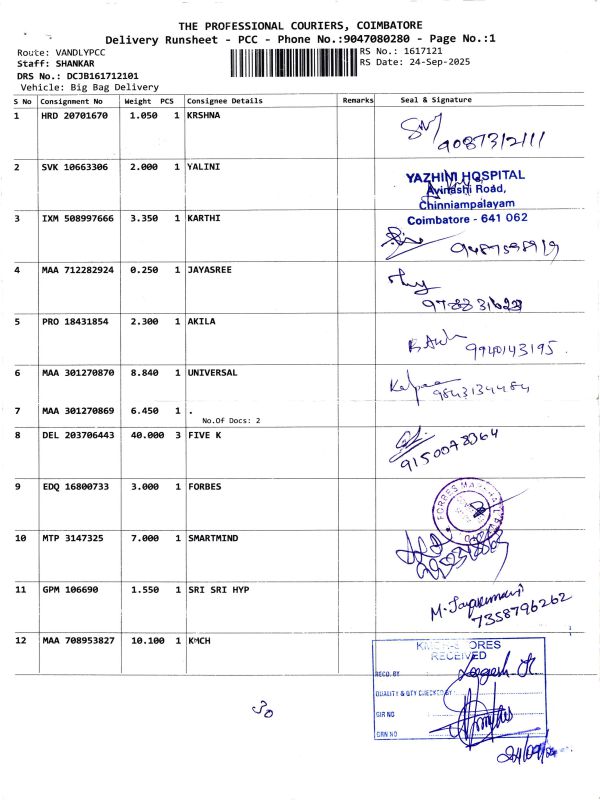 THE PROFESSIONAL COURIERS, COIMBATORE
Delivery Runsheet - PCC - Phone No.:9047080280 - Page No.:1
Route: VANDLYPCC
Staff: SHANKAR
DRS No.: DCJB161712101
Vehicle: Big Bag Delivery
RS No.: 1617121
RS Date: 24-Sep-2025
S No Consignment No Weight PCS Consignee Details Remarks Seal & Signature
1 HRD 20701670 1.050 1 KRSHNA
9087312111
2 SVK 10663306 2.000 1 YALINI
YAZHINI HOSPITAL
Avinashi Road,
Chinniampalayam
Coimbatore - 641 062
3 IXM 508997666 3.350 1 KARTHI
9487598919
4 MAA 712282924 0.250 1 JAYASREE
5 PRO 18431854 2.300 1 AKILA
9940143195.
6 MAA 301270870 8.840 1 UNIVERSAL
9843134484
7 MAA 301270869 6.450 1 .
No.Of Docs: 2
8 DEL 203706443 40.000 3 FIVE K
9150078364
9 EDQ 16800733 3.000 1 FORBES
FORBES
10 MTP 3147325 7.000 1 SMARTMIND
11 GPM 106690 1.550 1 SRI SRI HYP
M. Jayakumari
7358796262
12 MAA 708953827 10.100 1 KMCH
KMCH STORES
RECEIVED
RECD. BY
QUALITY & QTY CHECKED BY
GIR NO
GRN NO
30